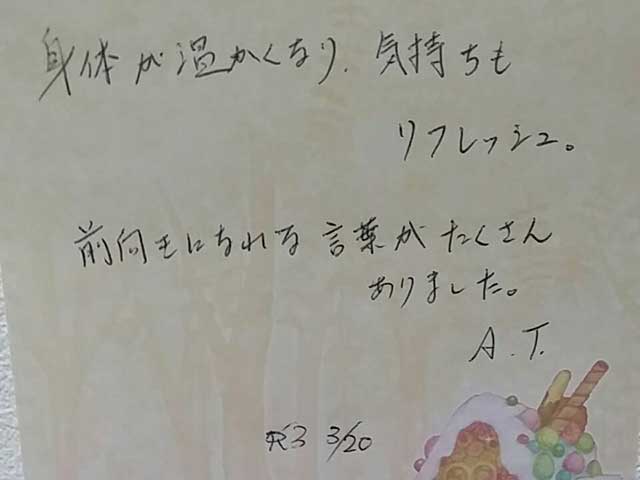 身体が温かくなり、気持ちも
リフレッシュ。
前向きになれる言葉がたくさん
ありました。
A.T.
R3 3/20